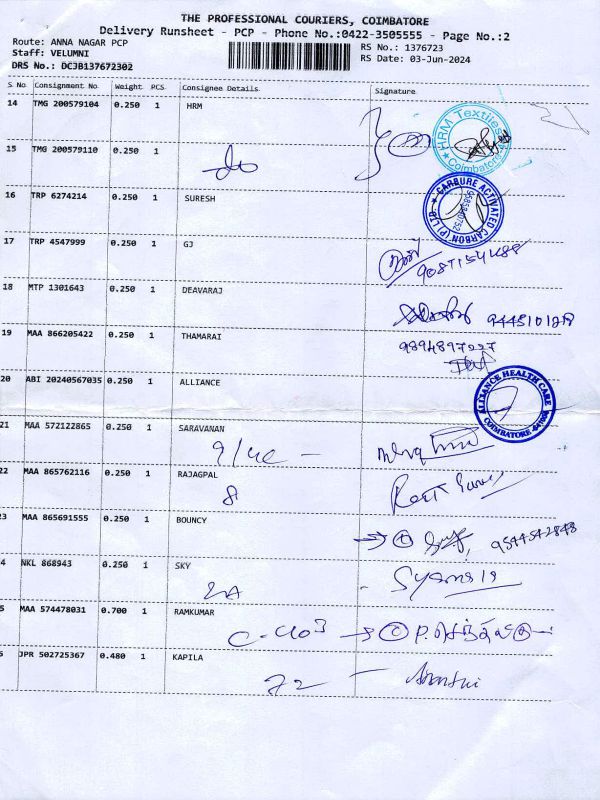 THE PROFESSIONAL COURIERS, COIMBATORE
Delivery Runsheet - PCP - Phone No.:0422-3505555 - Page No.:2
Route: ANNA NAGAR PCP
Staff: VELUMNI
DRS No.: DCJB137672302
RS No.: 1376723
RS Date: 03-Jun-2024
S No Consignment No. Weight PCS Consignee Details Signature
14 TMG 200579104 0.250 1 HRM
HRM Textiles
Coimbatore
15 TMG 200579110 0.250 1
do
16 TRP 6274214 0.250 1 SURESH
CARBURE ACTIVATED CARBON (P) LTD.
17 TRP 4547999 0.250 1 GJ
18 MTP 1301643 0.250 1 DEAVARAJ
19 MAA 866205422 0.250 1 THAMARAI
20 ABI 20240567035 0.250 1 ALLIANCE
ALLIANCE HEALTH CARE
COIMBATORE
21 MAA 572122865 0.250 1 SARAVANAN
22 MAA 865762116 0.250 1 RAJAGPAL
8
3 MAA 865691555 0.250 1 BOUNCY
9544542848
4 NKL 868943 0.250 1 SKY
2A
5 MAA 574478031 0.700 1 RAMKUMAR
C-403
JPR 502725367 0.480 1 KAPILA
72